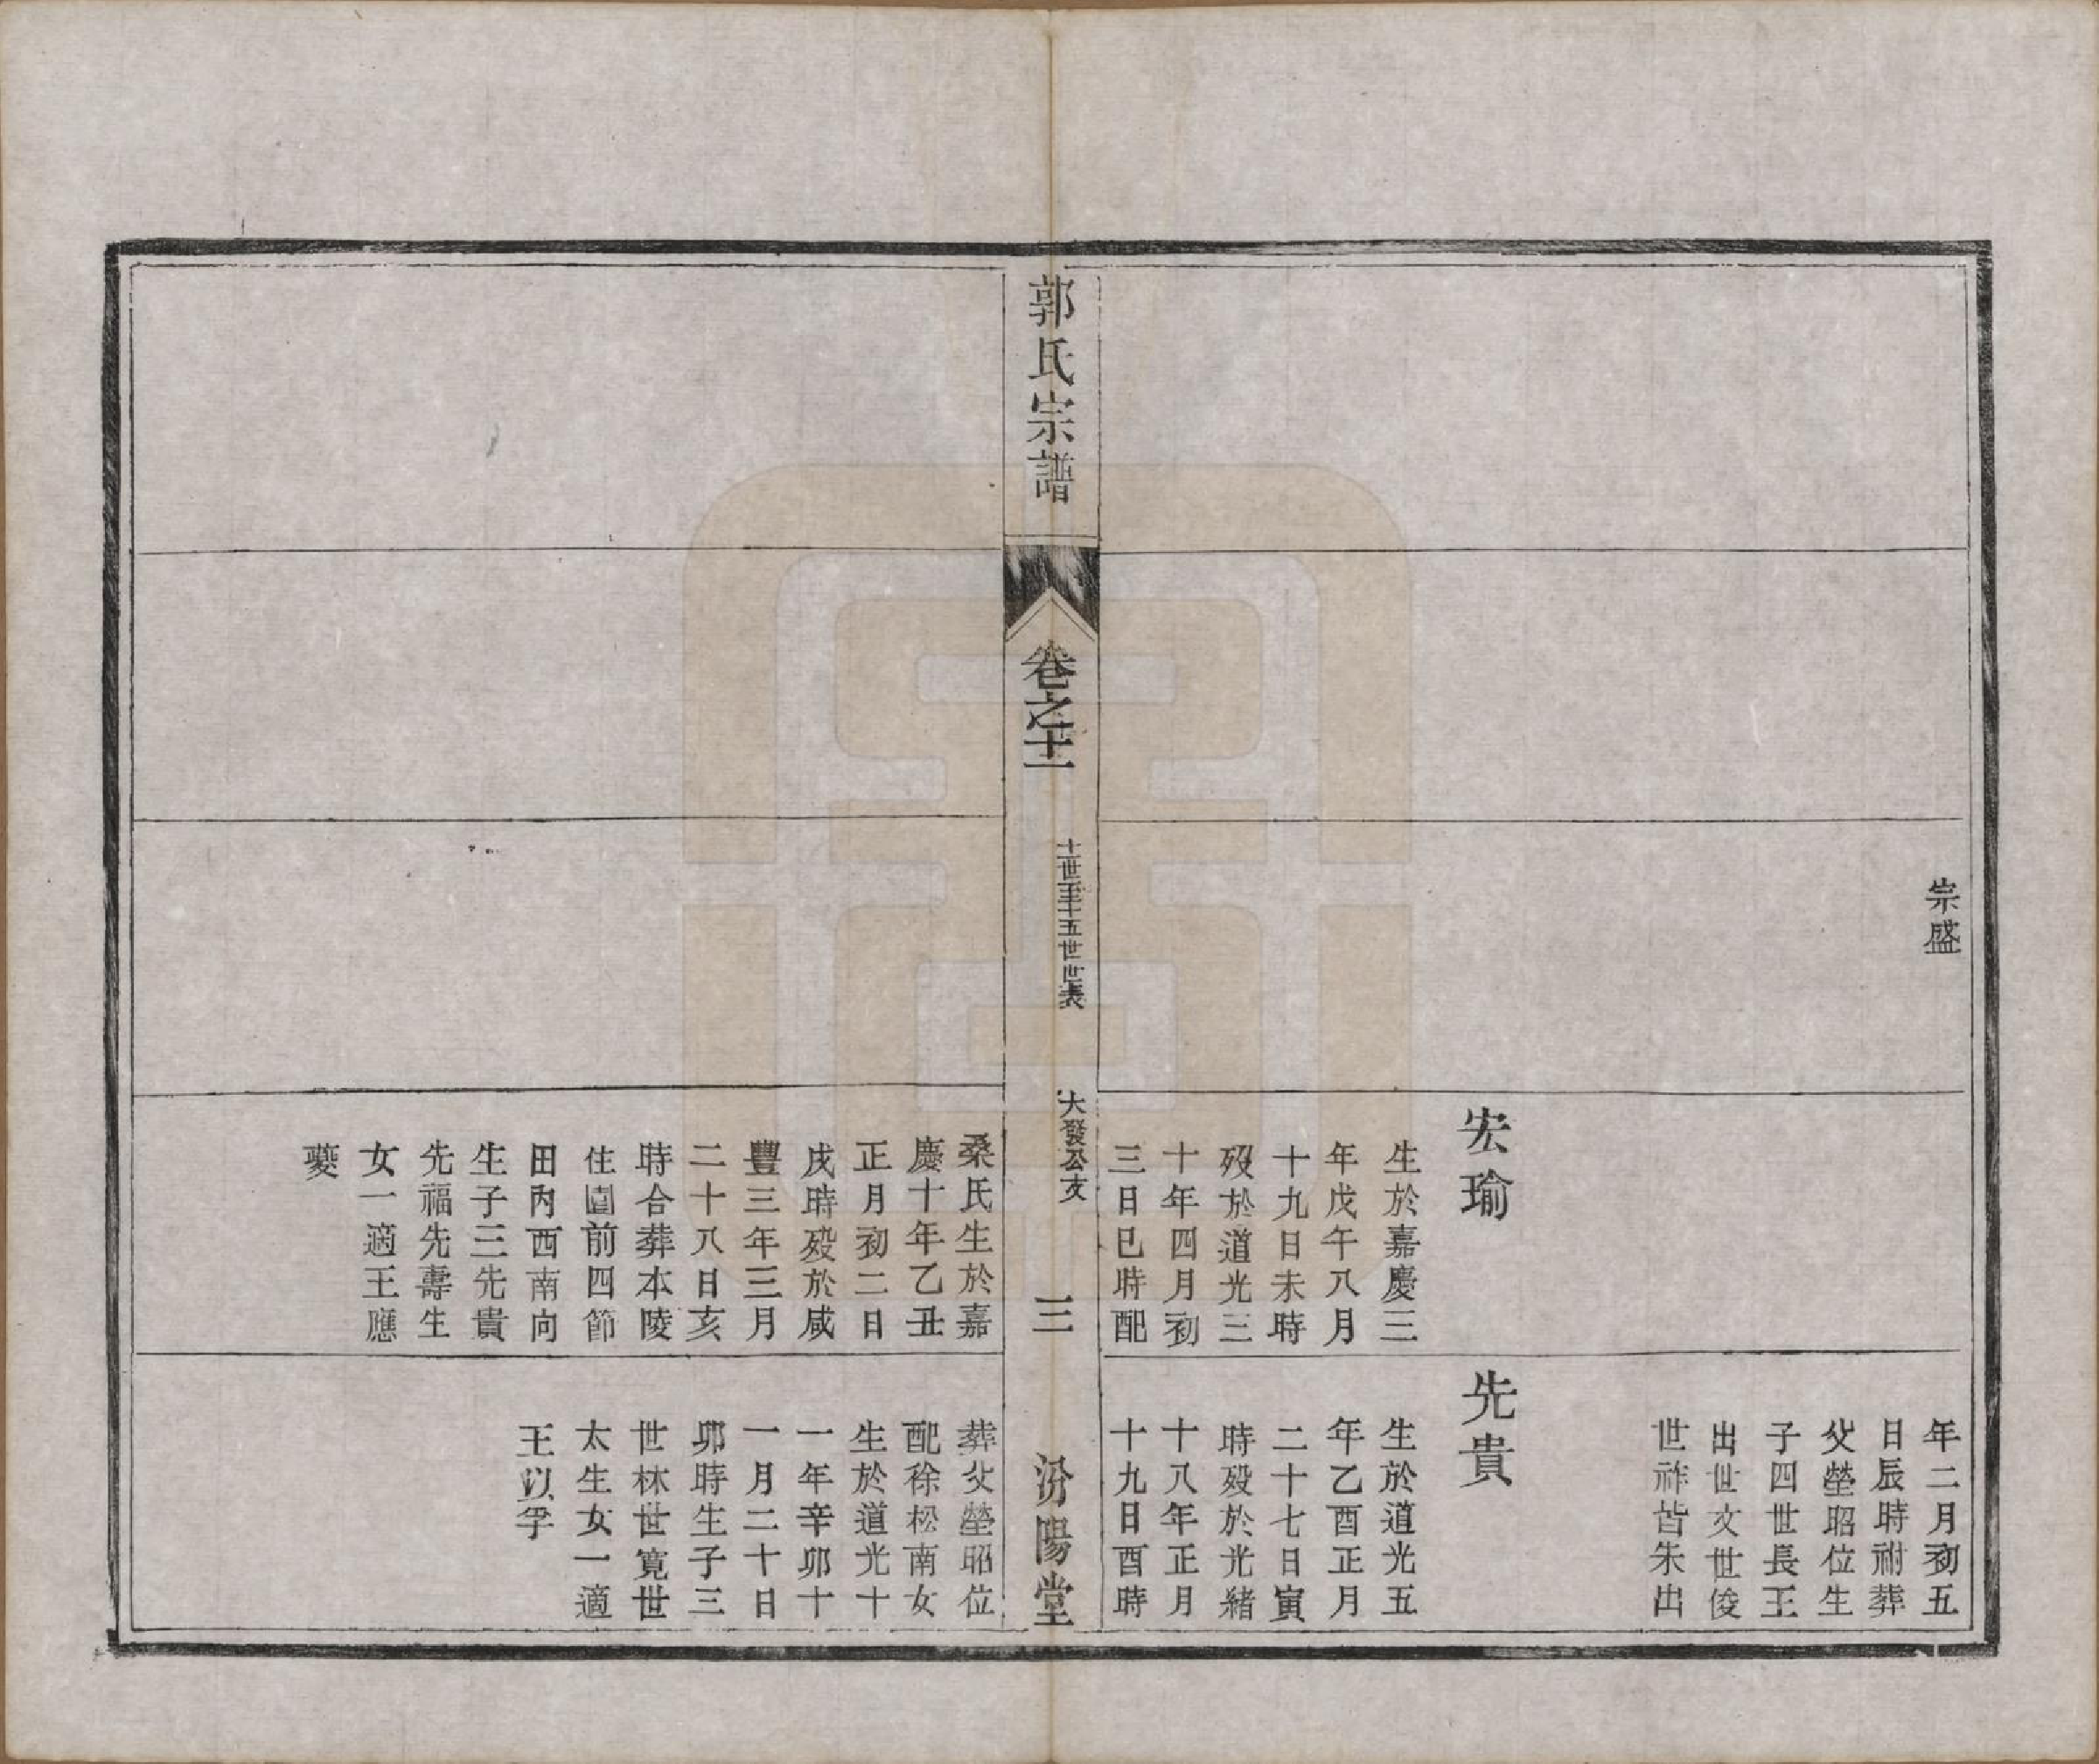 宗盛
宏瑜
生於嘉慶三
年戊午八月
十九日未時
歿於道光三
十年四月初
三日巳時配
先貴
年二月初五
日辰時祔葬
父塋昭位生
子四世長王
出世文世俊
世祚皆朱出
生於道光五
年乙酉正月
二十七日寅
時歿於光緒
十八年正月
十九日酉時
郭氏宗譜
卷之十一
十世至十五世世表
大發公支
三
汾陽堂
桑氏生於嘉
慶十年乙丑
正月初二日
戌時歿於咸
豐三年三月
二十八日亥
時合葬本陵
住園前四節
田內西南向
生子三先貴
先福先壽生
女一適王應
夔
葬父塋昭位
配徐松南女
生於道光十
一年辛卯十
一月二十日
卯時生子三
世林世寬世
太生女一適
王以孚